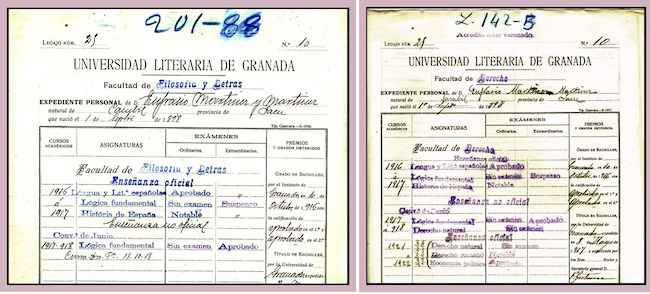 201-88
LEGAJO NÚM. 25 N.º 10
UNIVERSIDAD LITERARIA DE GRANADA
Facultad de Filosofía y Letras
EXPEDIENTE PERSONAL de D. Eufrasio Martínez y Martínez
natural de Cambil provincia de Jaén
que nació el 1 de Sptre de 1898
CURSOS ACADÉMICOS
ASIGNATURAS
EXÁMENES
Ordinarios. Extraordinarios.
PREMIOS Y GRADOS OBTENIDOS
Facultad de Filosofía y Letras
Enseñanza oficial
1916 Lengua y Lit.ª españolas Aprobado
á Lógica fundamental Sin examen Suspenso
1917 História de España Notable
Enseñanza no oficial
Conv.ª de Junio
1917-918 Lógica fundamental Sin examen Aprobado
GRADO DE BACHILLER,
por el Instituto de
Granada en 10
Octubre de 1916 con
la calificación de
aprobado en el
aprobado en el 2º
TÍTULO DE BACHILLER,
Granada expedido
L. 142-B
Acreditó estar vacunado.
LEGAJO NÚM. 25 N.º 10
UNIVERSIDAD LITERARIA DE GRANADA
Facultad de Derecho
EXPEDIENTE PERSONAL de D. Eufrasio Martínez Martínez
natural de Cambil provincia de Jaén
que nació el 1º de Sept de 1898
CURSOS ACADÉMICOS
ASIGNATURAS
EXÁMENES
Ordinarios. Extraordinarios.
PREMIOS Y GRADOS OBTENIDOS
Facultad de Derecho
Enseñanza oficial
1916 Lengua y Lit.ª españolas Aprobado
á Lógica fundamental Sin examen Suspenso
1917 Historia de España Notable
Enseñanza no oficial
Conv.ª de Junio
1917 Lógica fundamental Sin examen Aprobado
á 918 Derecho natural Sin examen
Enseñanza oficial
1921 Derecho natural Sin examen
á Derecho romano Notable
1922 Economía política Aprobado
GRADO DE BACHILLER,
por el Instituto de
Granada en 10
Octubre de 1916 con
la calificación de
Aprobado
Aprobado
TÍTULO DE BACHILLER,
expedido en
8 Mayo
1917
Rector y
Secretario general D.